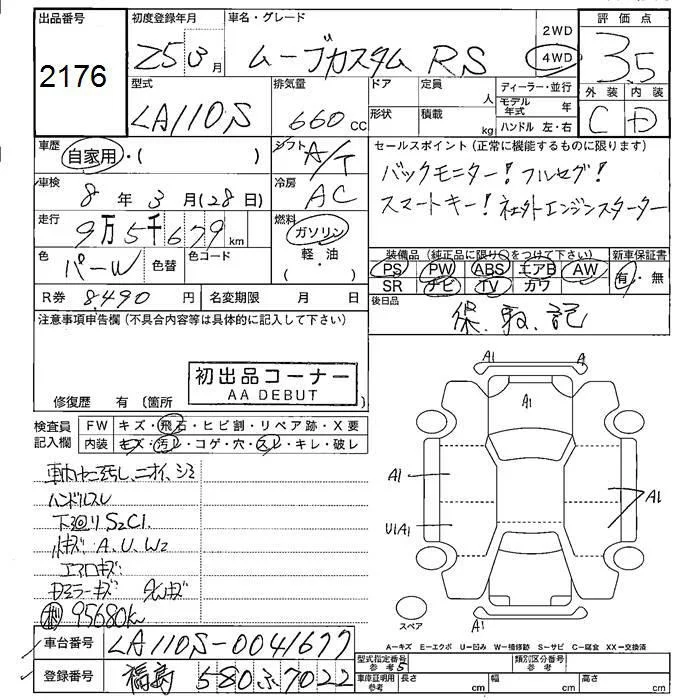 出品番号 初度登録年月 車名・グレード 評価点
2176
25 3月 ムーブカスタム RS 2WD 4WD 3.5
型式 排気量 ドア 定員 人 ディーラー・並行 外装 内装
LA110S 660cc 形状 積載 kg モデル年式 年 C D
ハンドル 左・右
車歴 自家用・( ) シフト A/T セールスポイント(正常に機能するものに限ります)
バックモニター!フルセグ!
車検 8年3月(28日) 冷房 AC スマートキー!
走行 9万5千679km 燃料 ガソリン 軽・油
色 パーW 色替 色コード ( ) 装備品(純正品に限り○をつけて下さい) 新車保証書
PS PW ABS エアB AW 有・無
SR ナビ TV カワ
R券 8490円 名変期限 月 日 後日品
保、取、記
注意事項申告欄(不具合内容等は具体的に記入して下さい)
初出品コーナー
AA DEBUT
修復歴 有(箇所
検査員記入欄 FW キズ・飛石・ヒビ割・リペア跡・X要
内装 キズ・汚レ・コゲ・穴・スレ・キレ・破レ
A1 A
A1
車内ヤニ汚し、ニオイ、シミ A1 A1
ハンドルスレ
下廻りS2C1 U1A1
小キズ A、U、W2
エアロキズ
Dミラーキズ
95680km スペア A1
A=キズ E=エクボ U=凹み W=補修跡 S=サビ C=腐食 XX=交換済
車台番号 LA110S-0041677 型式指定番号 参考 5 類別区分番号 参考
登録番号 福島 580 ふ 7022 車庫証明用 参考 長さ cm 幅 cm 高さ cm